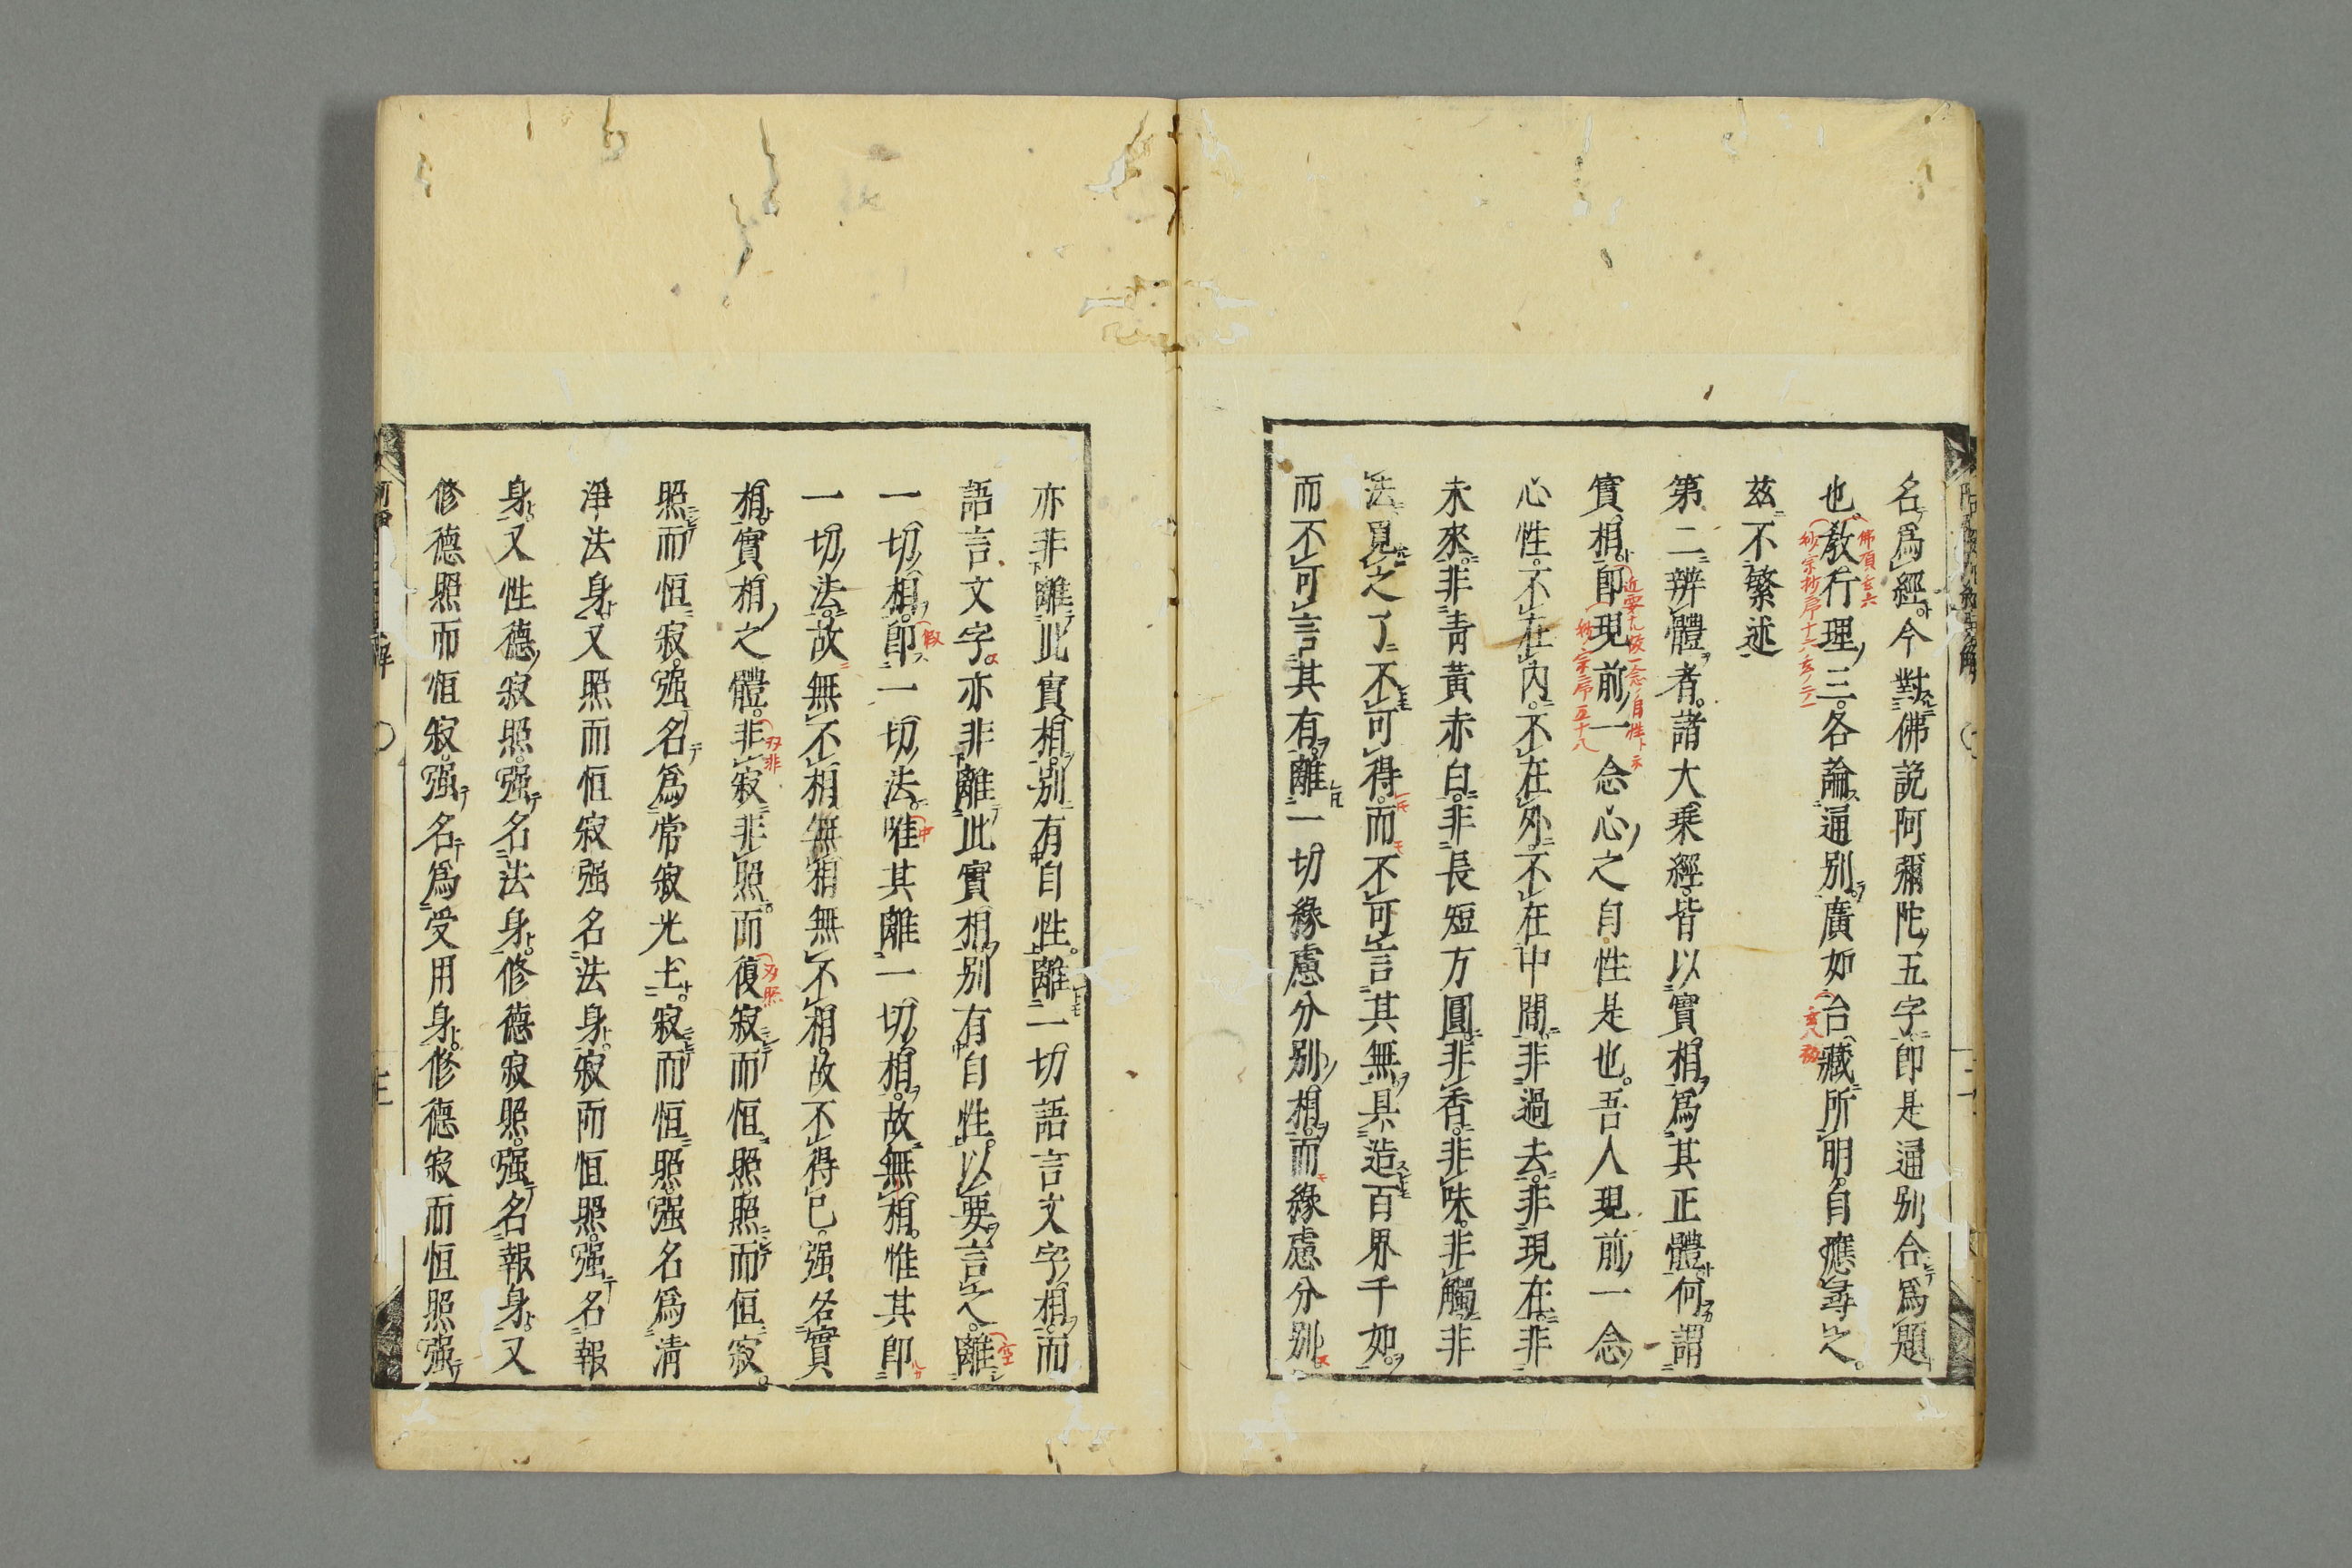 名爲經今對佛說阿彌陀五字即是通別合爲題
也。教行理三。各論通別。廣如台藏所明。自應尋之。
茲不繁述
第二辨體者。諸大乗經皆以實相爲其正體何謂
實相。即現前一念心之自性是也。吾人現前一念
心性。不在内。不在外。不在中間。非過去。非現在。非
未來。非青黃赤白。非長短方圓。非香。非味。非觸。非
法。覓之了不可得。而不可言其無。具造百界千如。
而不可言其有。離一切緣慮分別相。而緣慮分別。
亦非離此實相。別有自性。離一切語言文字相。而
語言文字。亦非離此實相別有自性。以要言之。離
一切相。即一切法。唯其離一切相。故無相。惟其即
一切法。故無不相。無相無不相。故不得已。强名實
相。實相之體。非寂非照。而復寂而恒照照而恒寂。
照而恒寂。强名爲常寂光土。寂而恒照。强名爲淸
淨法身。又照而恒寂强名法身。寂而恒照。强名報
身。又性德寂照。强名法身。修德寂照。强名報身。又
修德照而恒寂。强名爲受用身。修德寂而恒照强
佛頂玄六
妙宗抄序十六
妙宗
假
中
空
双非
双照